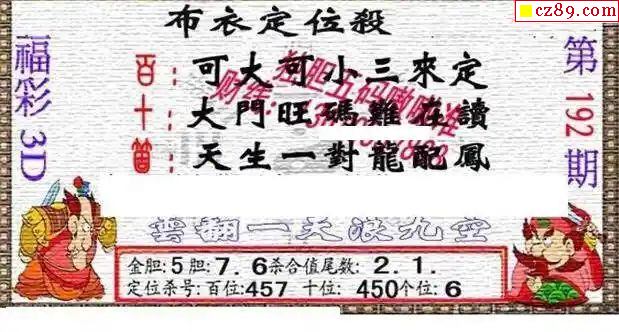 cz89.com
布衣定位殺
福彩3D
第192期
百: 可大可小三來定
十: 大門旺碼難在讀
個: 天生一對龍配鳳
雲翻一天浪九空
金胆:5胆:7.6杀合值尾数:2.1.
定位杀号:百位:457 十位:450个位:6